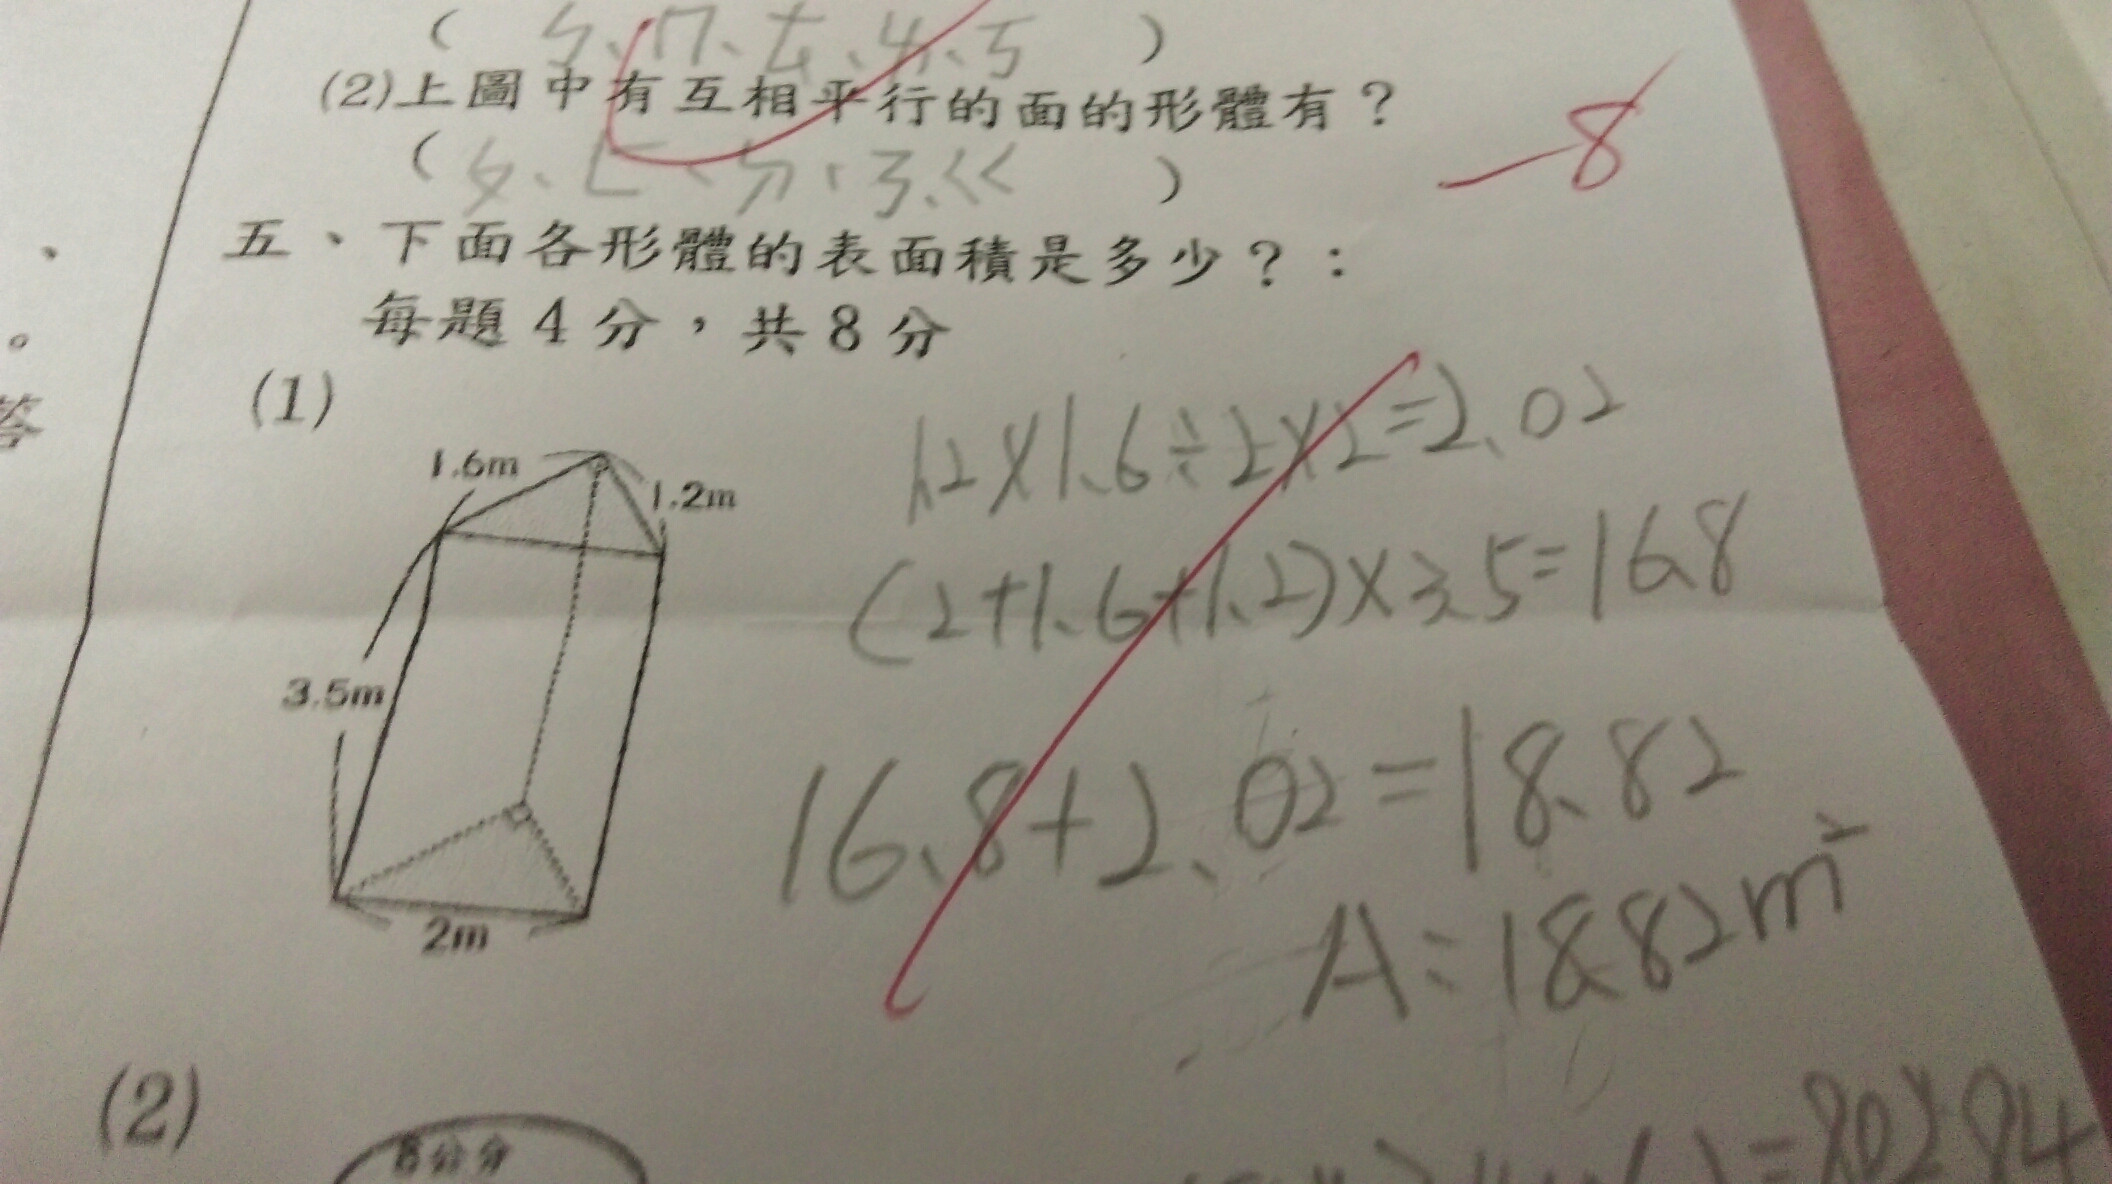 ( ㄘ、ㄇ、ㄊ、ㄆ、ㄎ )
(2)上圖中有互相平行的面的形體有?
-8
( ㄆ、ㄈ、ㄉ、ㄋ、ㄍ )
五、下面各形體的表面積是多少?:
每題4分,共8分
答
(1)
1.6m
1.2m
3.5m
2m
1.2×1.6÷2×2=2.02
(2+1.6+1.2)×3.5=16.8
16.8+2.02=18.82
A:18.82m²
(2)
8公分
=80284